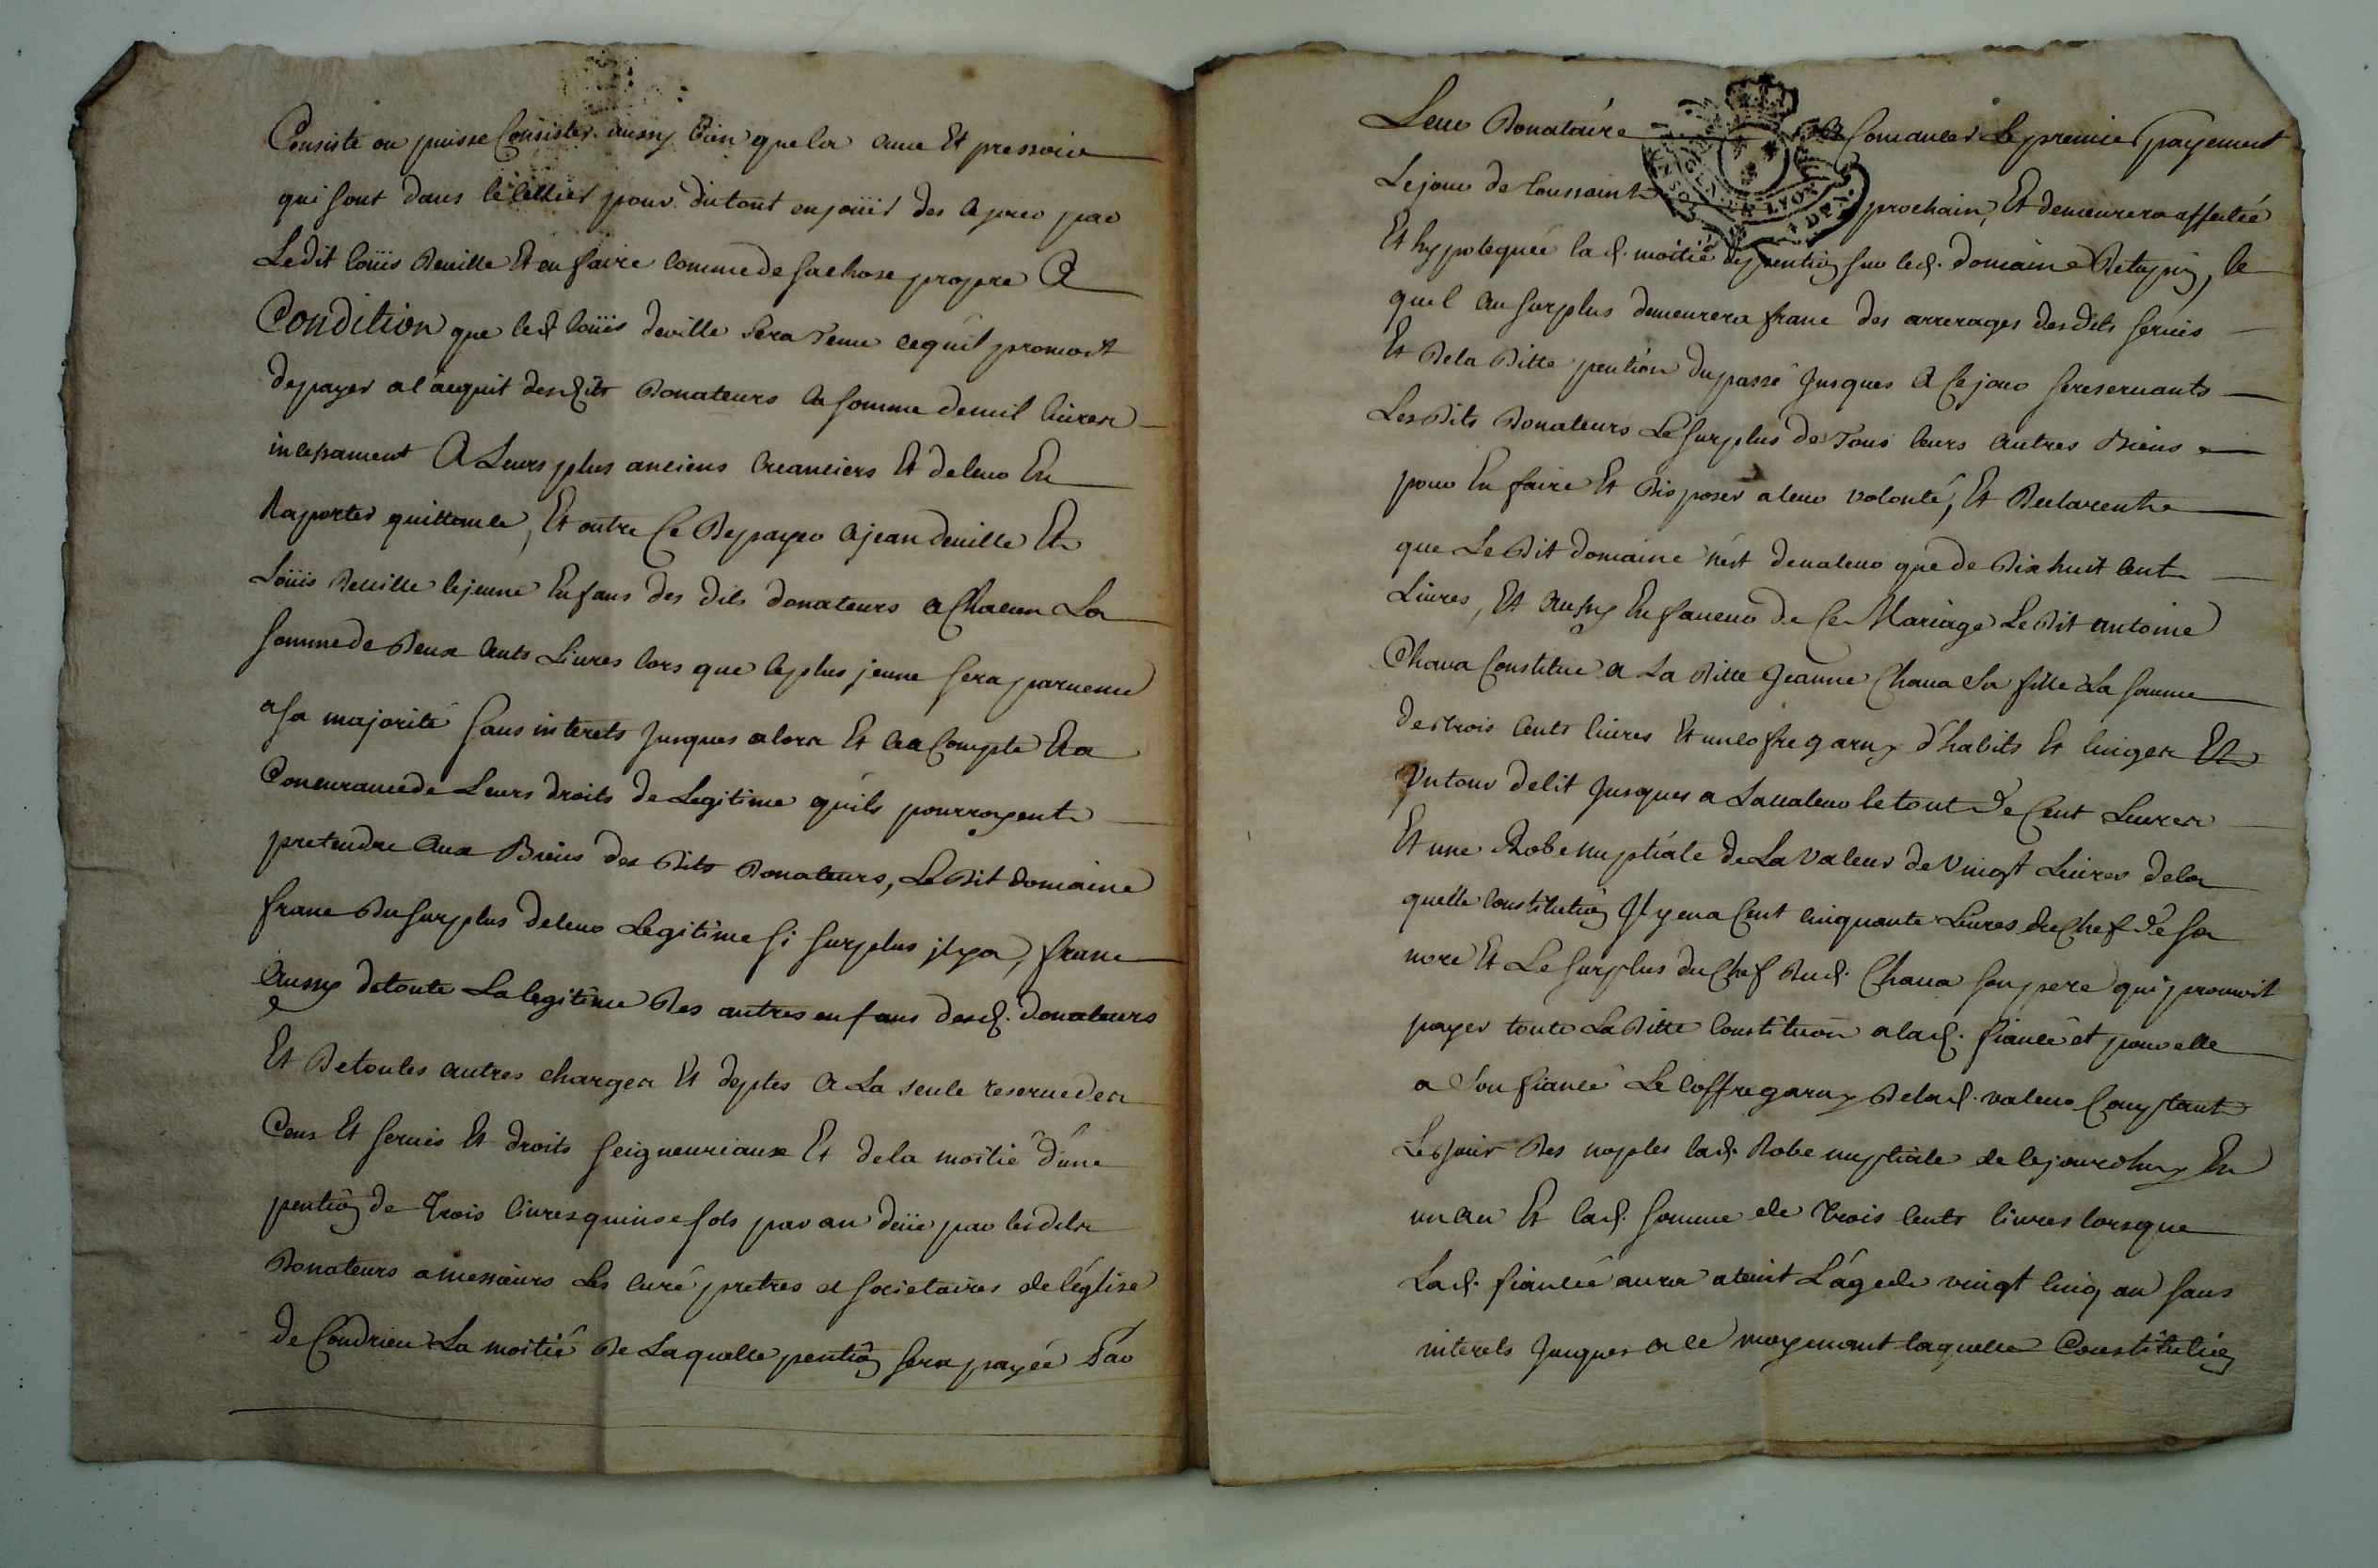 Consiste ou puisse Consister aussy bien que la cuue Et pressoir
qui sont dans le cellier pour du tout en joüir des a pres par
Le dit loüis deuille Et en faire comme de sa chose propre A
Condition que led. loüis deville sera Tenu ce qu'il promait
de payer a l'acquit desdits Donateurs la somme de mil liures
incessament A Leurs plus anciens creanciers Et de leur En
Raporter quittance, Et outre Ce De payer a jean deuille Et
Loüis Deuille le jeune Enfans des dits donateurs a Chacun La
somme de Deux cents Liures lors que le plus jeune sera paruenu
a sa majorité sans interets jusques alors Et a a Compte Et a
Concurance de Leurs droits de Legitime qu'ils pourroyent
pretendre aux Biens des Dits Donateurs, Le Dit domaine
franc Du surplus de leur Legitime si surplus il y a, franc
Aussy de toute La legitime Des autres enfans desd. donateurs
Et De toutes autres charges Et deptes a La seule reserue des
Cens Et seruis Et droits seigneuriaux Et de la moitié d'une
pention de Trois liures quinse sols par an deüe par lesdits
Donateurs a messieurs Les curé pretres et societaires de l'église
de Condrieu La moitié De Laquelle pention sera payée Par
Leur Donataire A Comancer Le premier payement
Le jour de toussaint prochain, Et demeurera affectée
Et hypotequée lad. moitié de pention sur led. domaine De tupin, le
quel au surplus demeurera franc des arrerages desdits seruis
Et De la Ditte pention du passé jusques a Ce jour se reseruants
Les Dits Donateurs Le surplus de Tous leurs autres Biens
pour En faire Et Disposer a leur volonté, Et Declarent
que Le Dit domaine n'est de valeur que de Dix huit cent
Liures, Et Aussy En faueur de Ce Mariage Le Dit antoine
Chaua Constitue a La Ditte Jeanne Chaua Sa fille La somme
de trois cents liures Et un cofre garny d'habits Et linges Et
Un tour de lit jusques a La valeur le tout de Cent Liures
Et une Robe nuptiale de La valeur de Vingt Liures de la
quelle constitution Il y en a Cent cinquante Liures du Chef de sa
mere Et Le surplus du Chef Dud. Chaua son pere qui promoit
payer toute La Ditte Constitution a lad. fiancée et pour elle
a Son fiancé Le Coffre garny De lad. valeur Comptant
Le jour Des noptes lad. Robe nuptiale de ce jourdhuy En
un an Et lad. somme de Trois cents liures lorsque
Lad. fiancée aura ateint L'âge de vingt cinq an sans
interets jusques a ce moyenant laquelle Constitution